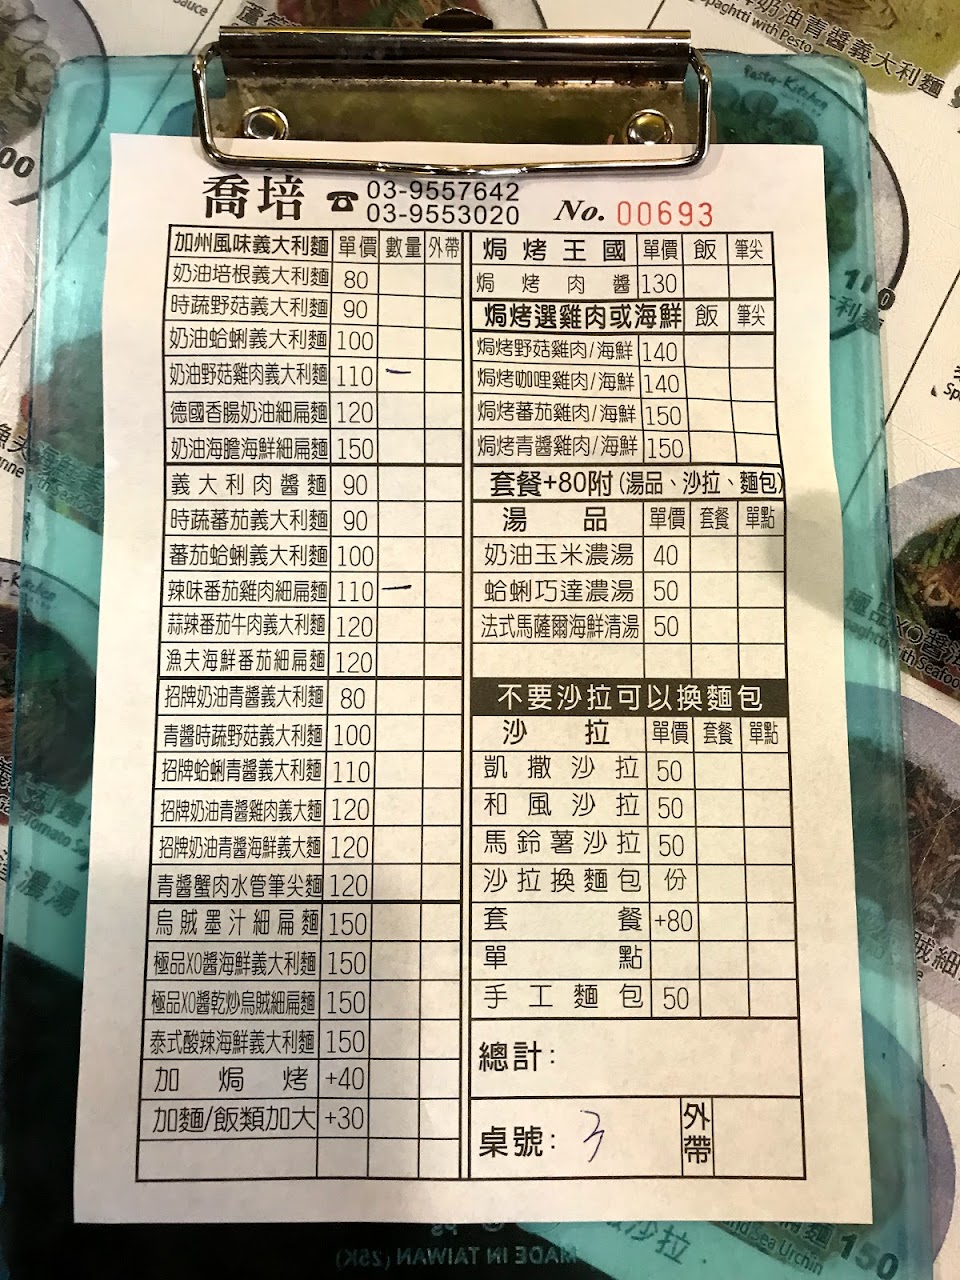 喬培 ☎ 03-9557642
03-9553020
No. 00693
加州風味義大利麵 單價 數量 外帶
奶油培根義大利麵 80
時蔬野菇義大利麵 90
奶油蛤蜊義大利麵 100
奶油野菇雞肉義大利麵 110 一
德國香腸奶油細扁麵 120
奶油海膽海鮮細扁麵 150
義大利肉醬麵 90
時蔬蕃茄義大利麵 90
蕃茄蛤蜊義大利麵 100
辣味番茄雞肉細扁麵 110 一
蒜辣番茄牛肉義大利麵 120
漁夫海鮮番茄細扁麵 120
招牌奶油青醬義大利麵 80
青醬時蔬野菇義大利麵 100
招牌蛤蜊青醬義大利麵 110
招牌奶油青醬雞肉義大麵 120
招牌奶油青醬海鮮義大麵 120
青醬蟹肉水管筆尖麵 120
烏賊墨汁細扁麵 150
極品XO醬海鮮義大利麵 150
極品XO醬乾炒烏賊細扁麵 150
泰式酸辣海鮮義大利麵 150
加焗烤 +40
加麵/飯類加大 +30
焗烤王國 單價 飯 筆尖
焗烤肉醬 130
焗烤選雞肉或海鮮 飯 筆尖
焗烤野菇雞肉/海鮮 140
焗烤咖哩雞肉/海鮮 140
焗烤蕃茄雞肉/海鮮 150
焗烤青醬雞肉/海鮮 150
套餐+80附(湯品、沙拉、麵包)
湯品 單價 套餐 單點
奶油玉米濃湯 40
蛤蜊巧達濃湯 50
法式馬薩爾海鮮清湯 50
不要沙拉可以換麵包
沙拉 單價 套餐 單點
凱撒沙拉 50
和風沙拉 50
馬鈴薯沙拉 50
沙拉換麵包 份
套餐 +80
單點
手工麵包 50
總計:
桌號: 3 外帶
Sauce
00
牌奶油青醬義大利麵
Spaghtti with Pesto
Pasta-Kitchen
110
濃湯
沙拉
MADE IN TAIWAN (25K)
and Sea Urchin
150